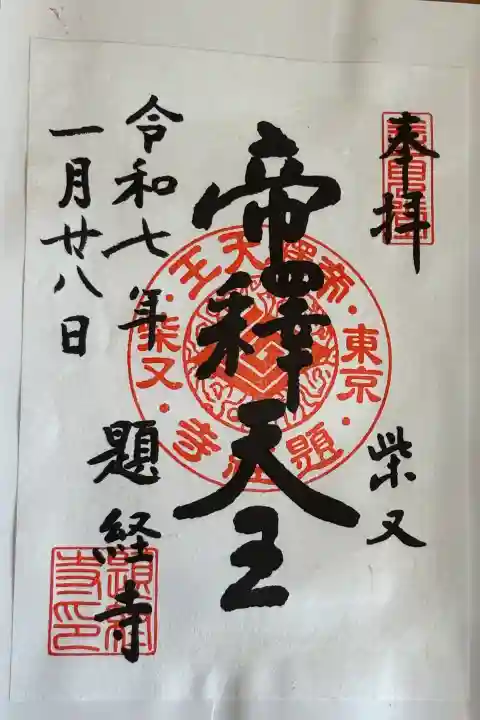 奉拝
柴又
帝釋天王
令和七年
一月廿八日
題経寺
帝釋天王・東京・題経寺・柴又・